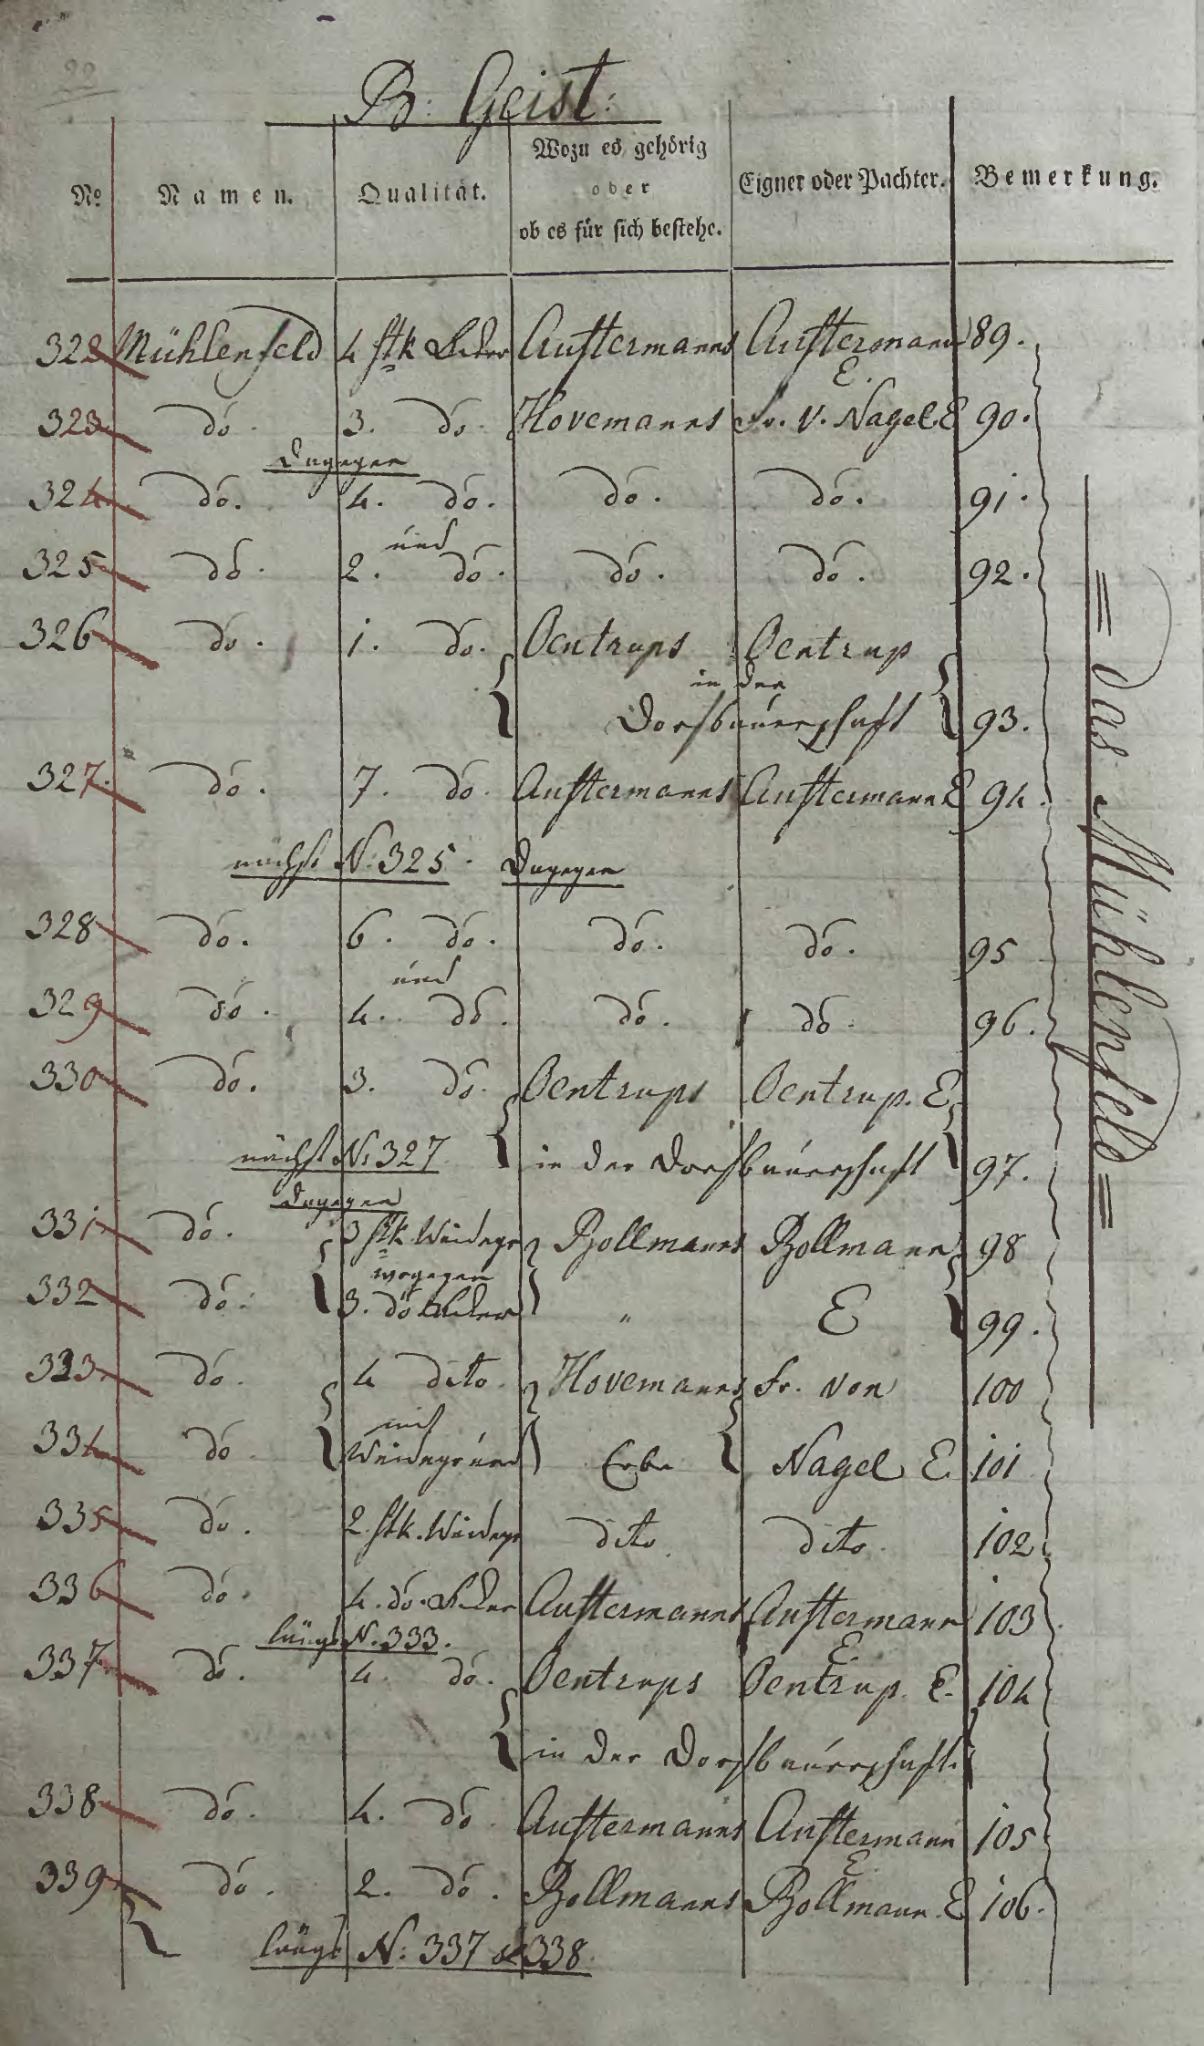 22
B: Geist:
No. Namen. Qualität. Wozu es gehörig oder ob es für sich bestehe. Eigner oder Pachter. Bemerkung.
322 Mühlenfeld 4 stk Acker Austermanns Austermann E. 89.
323 do. 3. do. Hovemanns Fr. v. Nagel E 90.
Dagegen
324 do. 4. do. do. do. 91.
und
325 do. 2. do. do. do. 92.
326 do. 1. do. Oentrups Oentrup
in der
Dorfbauerschaft 93.
327. do. 7. do. Austermanns Austermann E 94.
nächst N. 325. Dagegen
328 do. 6. do. do. do. 95
und
329 do. 4. do. do. do. 96.
330 do. 3. do. Oentrups Oentrup. E.
nächst N. 327 in der Dorfbauerschaft 97.
Dagegen
331 do. 3 stk Weidegr Bollmanns Bollmann 98
wogegen
332 do. 3. do Acker " E 99.
333 do. 4 dito. Hovemanns Fr. von 100
und
334 do Weidegrund Erbe Nagel E. 101
335 do. 2. stk. Weidegr dito dito. 102
336 do. 4. do. Acker Austermanns Austermann E. 103
längs N. 333.
337 do. 4. do. Oentrups Oentrup. E. 104
in der Dorfbauerschaft.
338 do. 4. do Austermanns Austermann E. 105
339 do. 2. do. Bollmanns Bollmann. E 106.
längs N. 337 & 338.
= Das Mühlenfeld =